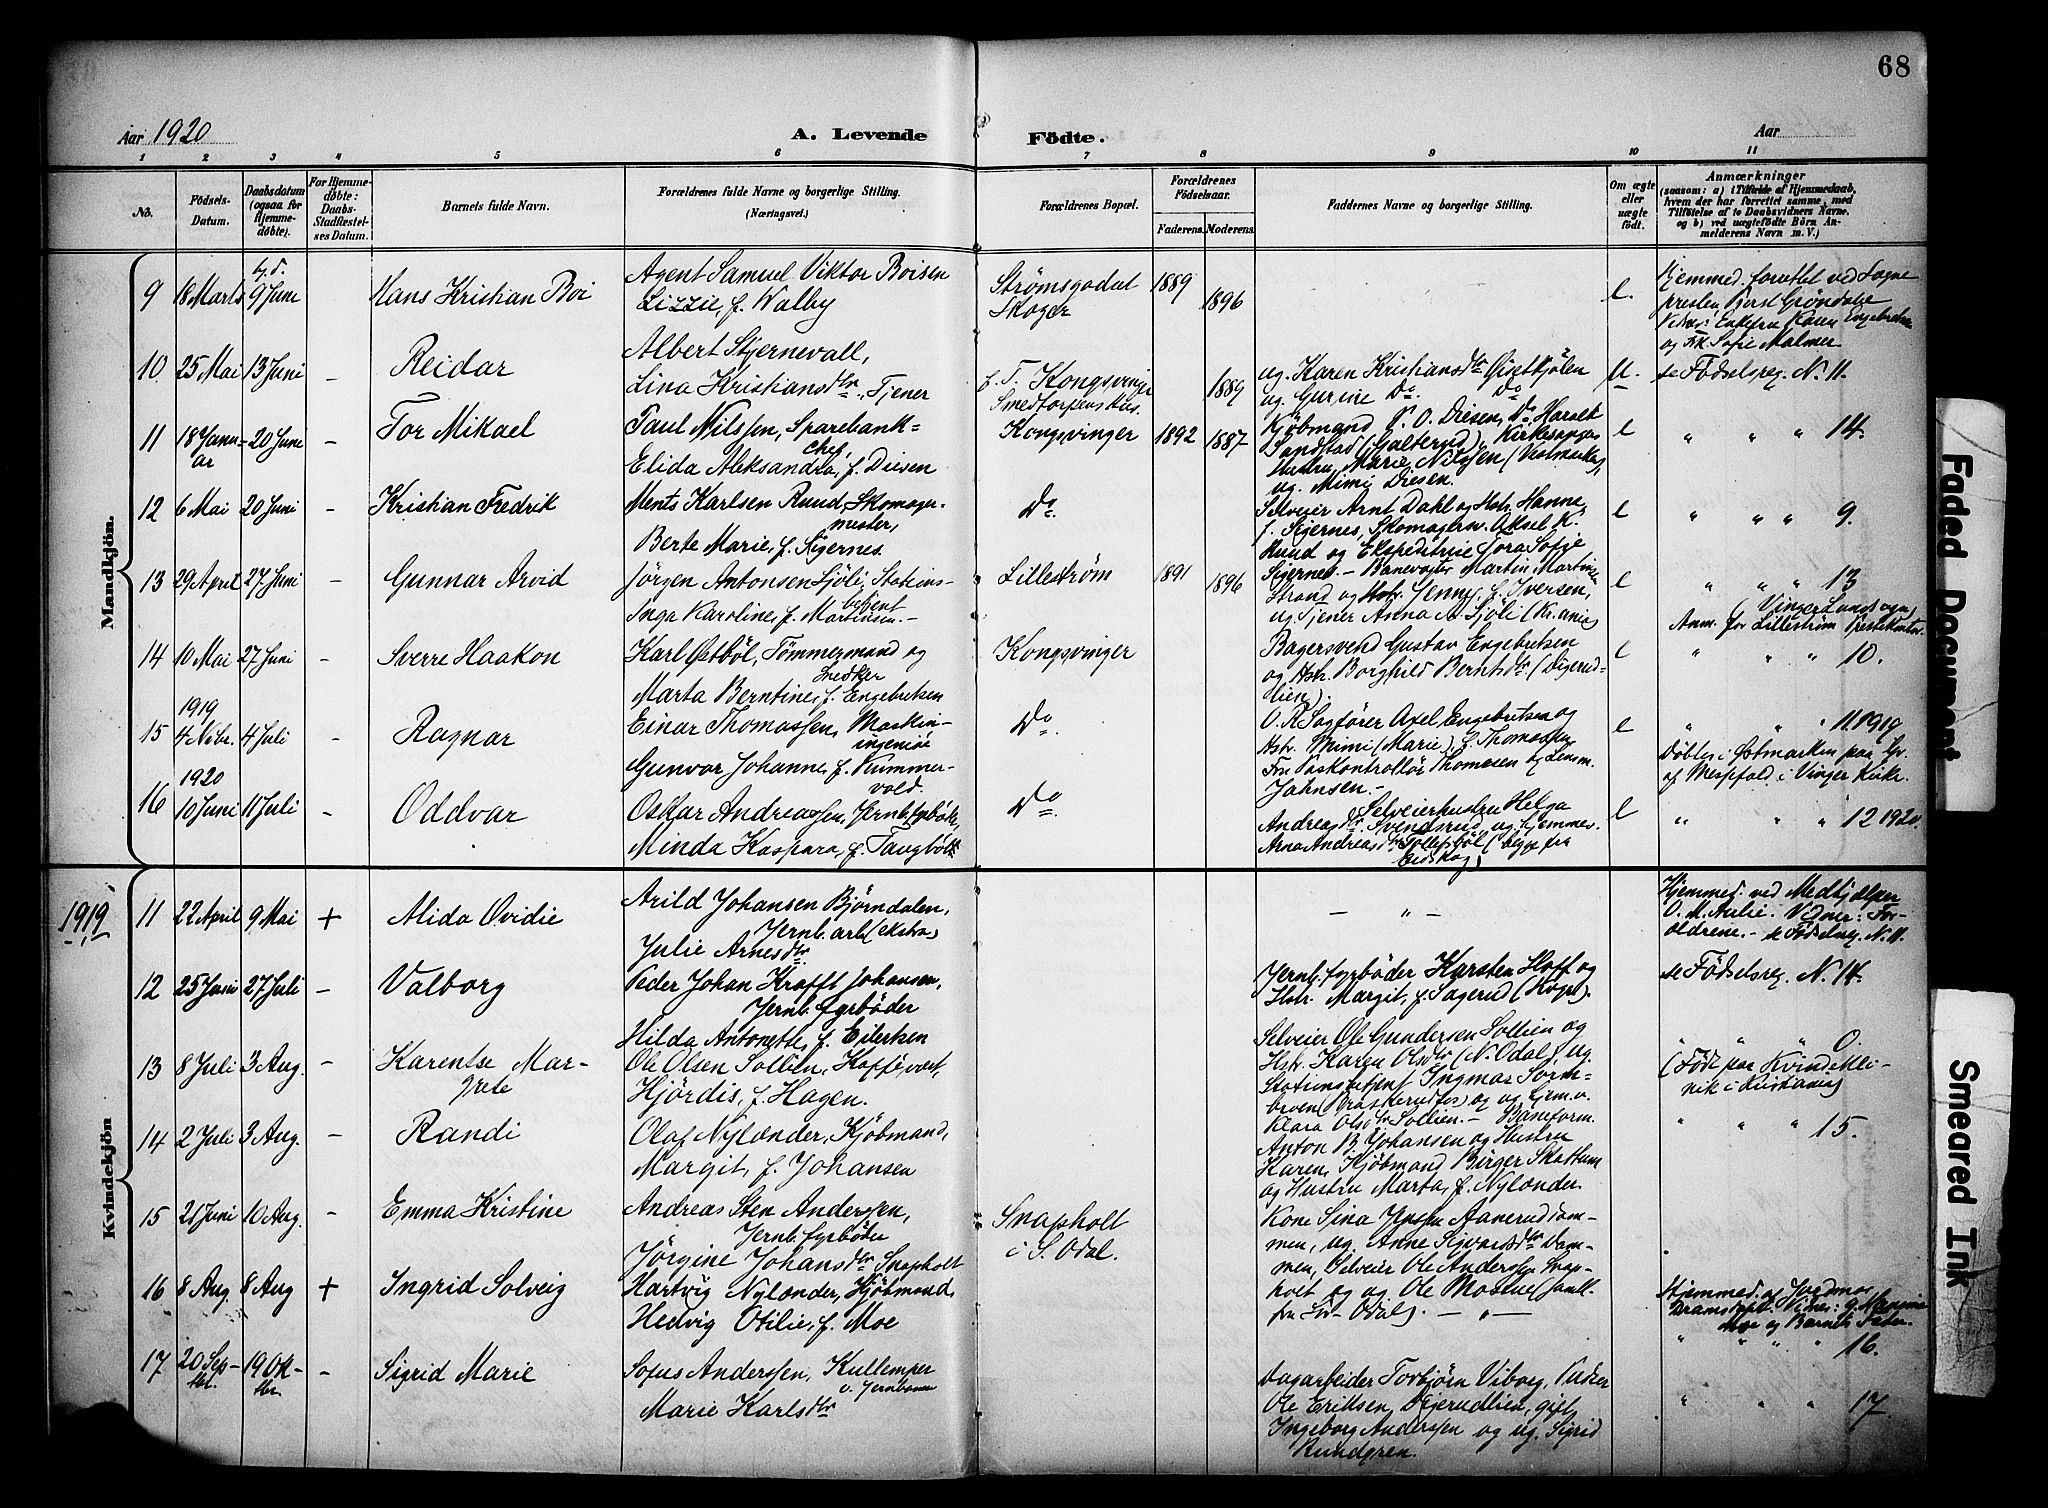 68
Aar 1920
A. Levende Födte.
Aar
1 2 3 4 5 6 7 8 9 10 11
No.
Födsels-Datum.
Daabsdatum (ogsaa for Hjemme-døbte).
For Hjemme-døbte: Daabs-Stadfæstel-ses Datum.
Barnets fulde Navn.
Forældrenes fulde Navne og borgerlige Stilling.
(Næringsvei.)
Forældrenes Bopæl.
Forældrenes Födselsaar.
Faderens. Moderens.
Faddernes Navne og borgerlige Stilling.
Om ægte eller uægte født.
Anmærkninger
(saasom: a) i Tilfælde af Hjemmedaab, hvem der har forrettet samme, med Tilföielse af to Daabsvidners Navne, og b) ved uægtefödte Börn Anmelderens Navn m. V.)
Mandkjön.
9 18 Marts 9 Juni Hans Kristian Boi
Agent Samuel Viktor Boisen
Lizzie, f. Walby
Strømsgodset
Skoger
1889 1896
e.
Hjemmed. forrettet ved Sogne
presten Grøndahl
Vidner: Enkefru Karen Engebretsen
og Frk. Sofie Malmer
10 25 Mai 13 Juni – Reidar
Albert Stjernevall,
Lina Kristiansdtr., Tjener
f. T. Kongsvinger
1889
ug. Karen Kristiansdtr
ug. Gurine Do. Do.
U.
se Födselsreg. N. 11.
11 18 Janu-ar 20 Juni – Tor Mikael
Paul Nilssen, Sparebank-
chef,
Elida Aleksandra, f. Diesen
Kongsvinger 1892 1887
Kjøbmand P. O. Diesen, Do Harald
Sandstad (Galterud), Kirkesanger
Hustru Marie Nilssen
ug. Mimi Diesen.
e
" " " 14.
12 6 Mai 20 Juni – Kristian Fredrik
Ments Karlsen Ruud, Skomager-
mester,
Berte Marie, f. Sigernes.
Do.
Selveier Arnt Dahl og Hstr. Hanne,
f. Sigernes, Skomagersv. Aksel K.
Ruud og Ekspeditrice Tora Sofie
Sigernes. –
e
" " " 9.
13 29 April 27 Juni – Gunnar Arvid
Jörgen Antonsen Sjöli, Stations-
betjent
Inga Karoline, f. Martinsen. –
Lillestrøm 1891 1896
Banevogter Martin Martinsen
Strand og Hstr. Jenny, f. Iversen,
ug. Tjener Anna A. Sjöli (Kr.ania)
e
" " " 13
(Vinger Landsogn)
Anm. for Lillestrøm Prestekontor.
14 10 Mai 27 Juni – Sverre Haakon
Karl Østböl, Tömmermand og
Snedker
Marta Berntine, f. Engebretsen
Kongsvinger
Bagersvend Gustav Engebretsen
og Hstr. Borghild Berntsdtr (Digerud-
lien).
e
" " " 10.
1919
15 4 Nvbr. 4 Juli – Ragnar
Einar Thomassen, Maskin-
ingeniør
Gunvor Johanne, f. Kummer-
vold.
Do.
O. R. Sagfører Axel Engebretsen og
Hstr. Mimi (Marie), f. Thomassen
Fru Paskontrollør Thomesen og Lensm.
Johnsen. –
e
" " " 11. 1919
Döbtes i Østmarken paa Gr.
af Messefald i Vinger Kirke.
1920
16 10 Juni 11 Juli – Oddvar
Oskar Andreassen, Jernb.fyrbøder,
Minda Kaspara, f. Taugbøl
Do.
Selveierhustru Helga
Andreasdtr Svendsrud, ug. hjemmev.
Arna Andreasdtr Sollesböl (begge fra
Eidskog)
e
" " " 12 1920.
1919
Kvindekjön
11 22 April 9 Mai + Alida Ovidie
Arild Johansen Björndalen,
Jernb. arb. (ekstra)
Julie Arnesdtr.
– " –
Hjemmed. ved Medhjælper
O. M. Aulie. Vidner: For-
ældrene. – se Födselsreg. N. 11.
12 25 Juni 27 Juli – Valborg
Peder Johan Krafft Johansen,
Jernb. fyrbøder
Hilda Antonette, f. Eilertsen
Jernb. fyrbøder Karsten Hoff og
Hstr. Margit, f. Sagerud
se Födselsreg. N. 14.
13 8 Juli 3 Aug. – Karentse Mar-
grete
Ole Olsen Sollien, Kaffevært,
Hjördis, f. Hagen.
Selveier Ole Gundersen Sollien og
Hstr. Karen Olsdtr (N. Odal), ug.
Stationsbetjent Ingmar Sorm-
broen (Braskerudfos) og ug. hjem.v.
Klara Olsdtr Sollien. –
" " " 0.
(Född paa Kvindekli-
nik i Kristiania)
14 2 Juli 3 Aug. – Randi
Olaf Nylænder, Kjöbmand,
Margit, f. Johansen
Baneform.
Anton B. Johansen og Hustru
Karen, Kjöbmand Birger Skattum
og Hustru Marta, f. Nylænder.
" " " 15.
15 21 Juni 10 Aug. – Emma Kristine
Andreas Sten Andersen,
Jernb. fyrbøder
Jørgine Johansdtr Snapholt
Snapholt
i S. Odal.
Kone Sina Aanerud
ug. Anne Sigvardsdtr Dam-
men, Selveier Ole Andersen Snap-
holt og ug. Ole Mostue (samtl.
fra Sör-Odal).
16 8 Aug 8 Aug + Ingrid Solveig
Hartvig Nylænder, Kjöbmand,
Hedvig Otilie, f. Moe
– " –
Hjemmed. af Jordmor
Bramstoft. Vidner:
Moe og Barnets Fader.
" " " 16.
17 20 Sep-tbr. 19 Ok-tbr. – Sigrid Marie
Sofus Anderssen, Kullemper
v. Jernbanen
Marie Karlsdtr
Dagarbeider Torbjörn Viborg, Pudser
Ole Eriksen, Digerudlien, gift
Ingeborg Anderssen og ug. Sigrid
Rundgren.
" " " 17.
Faded Document
Smeared Ink